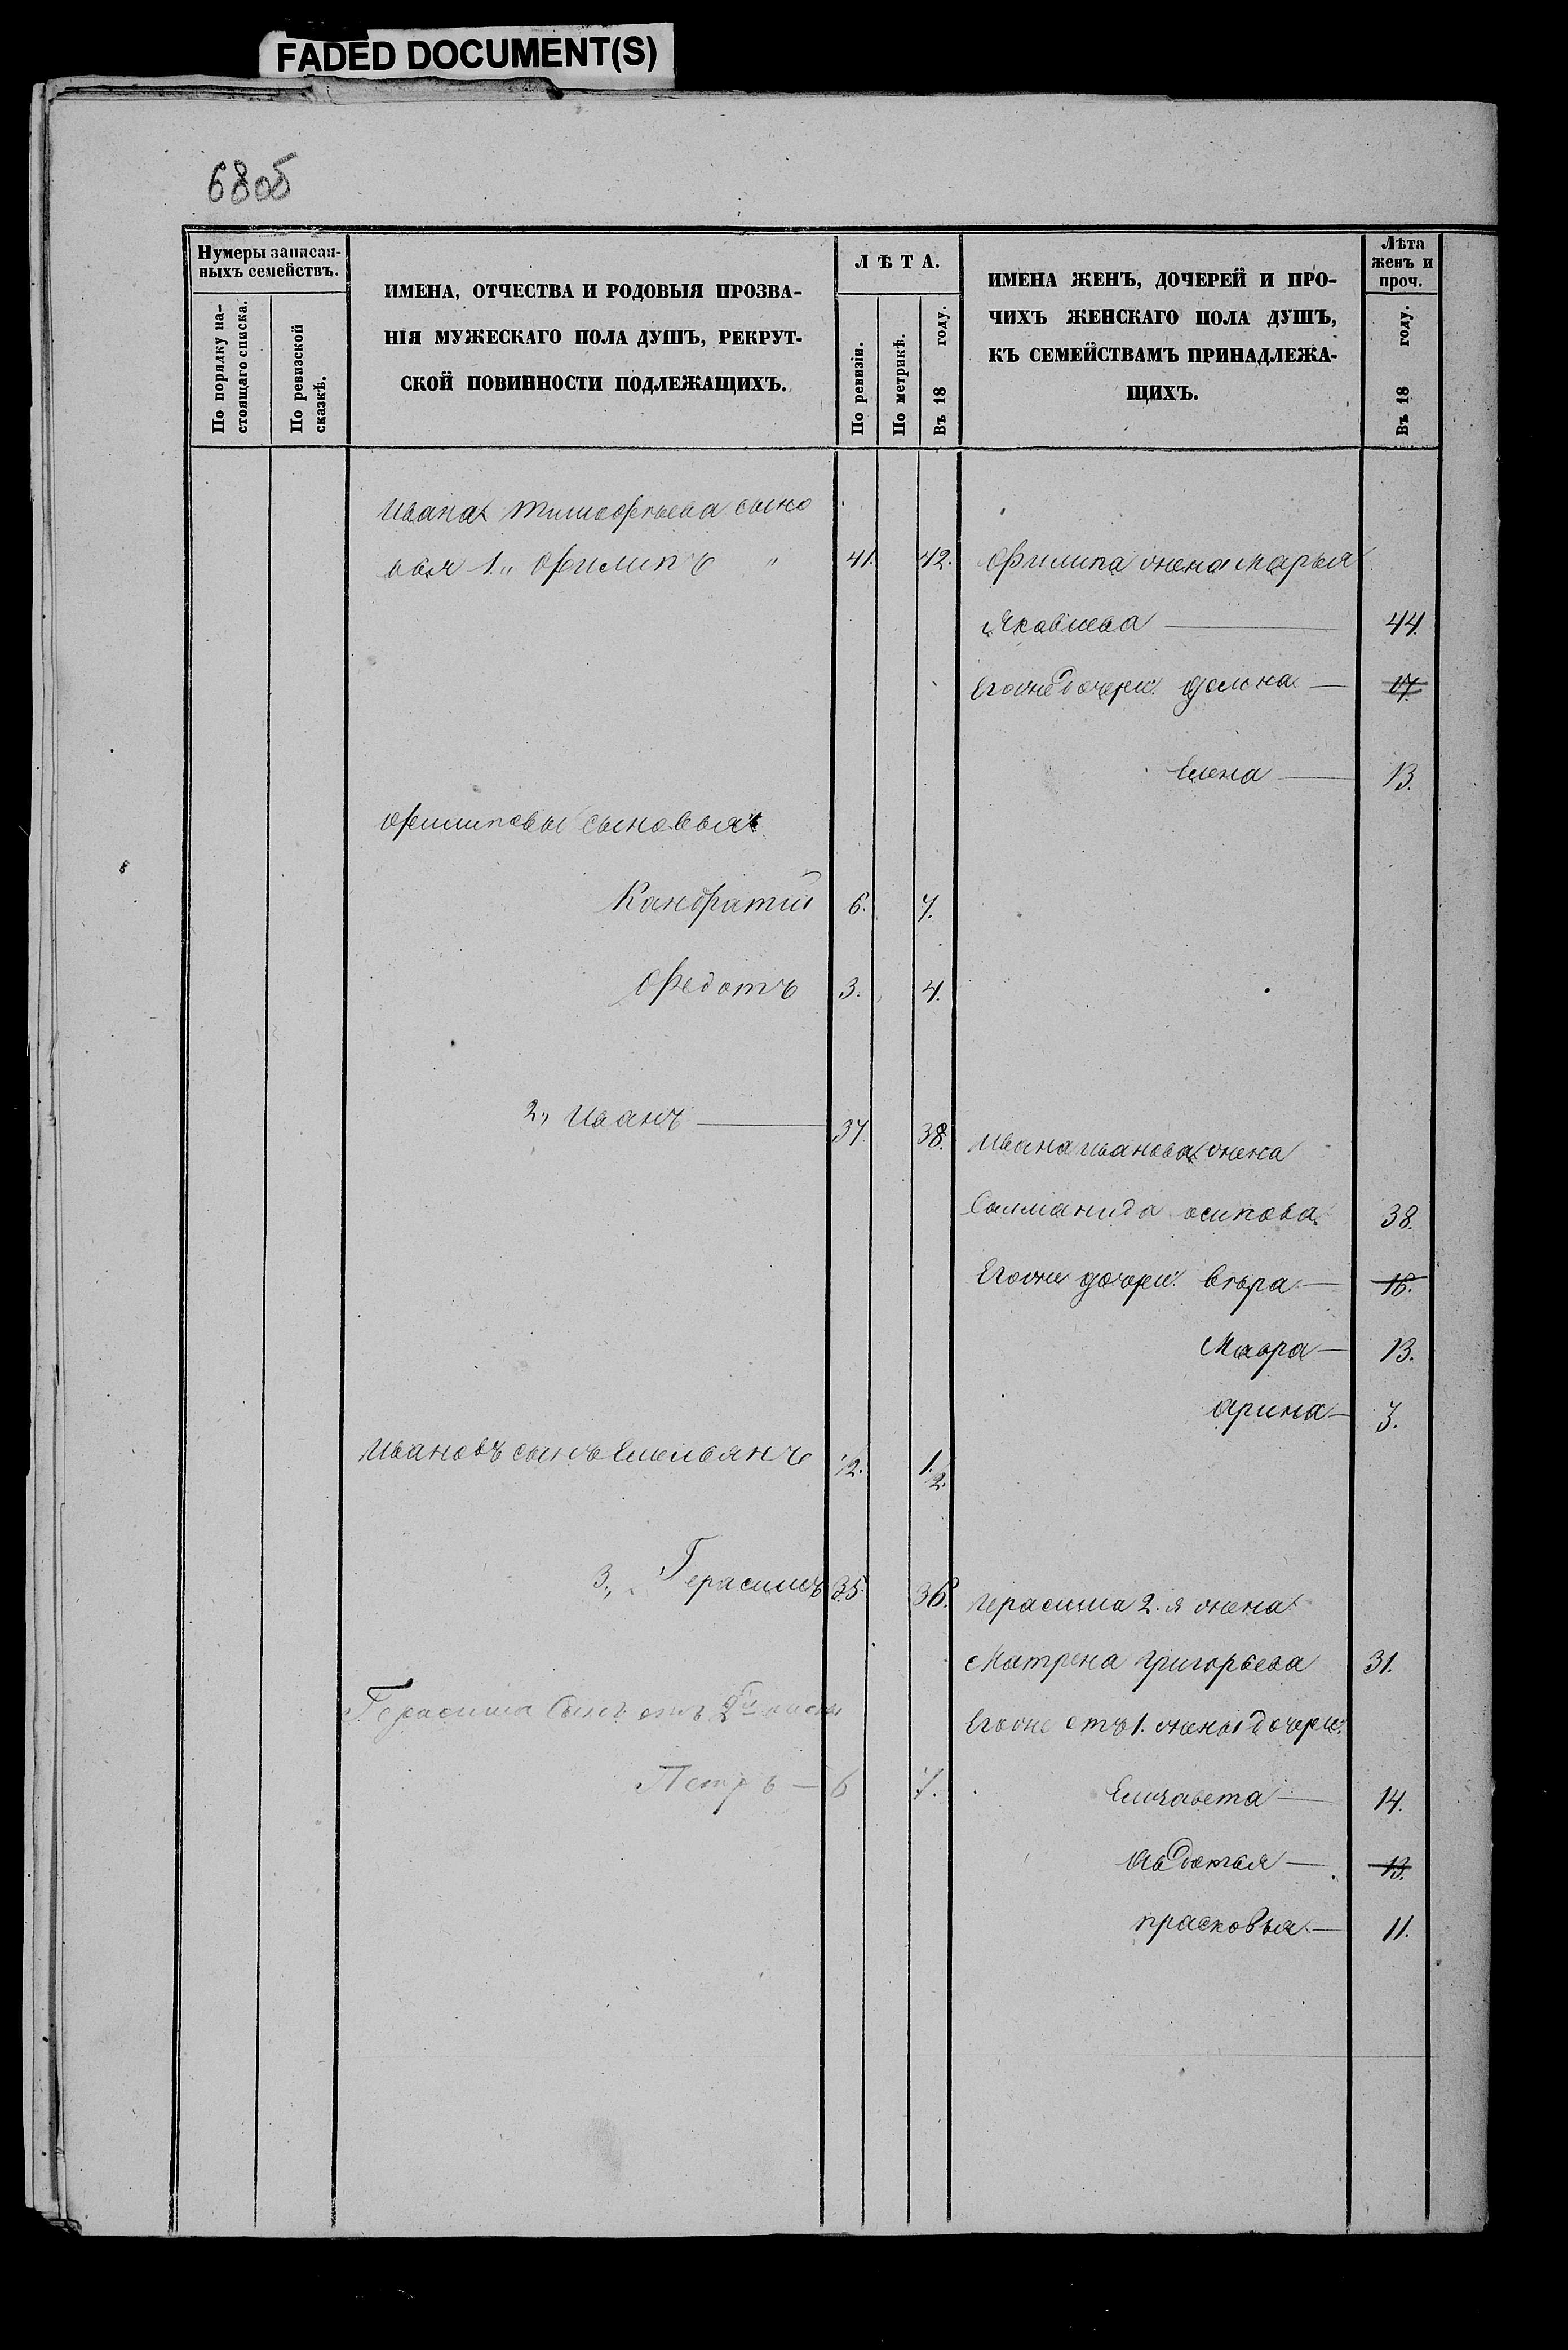 FADED DOCUMENT(S)
68об
Нумеры записан-
ныхъ семействъ.
По порядку на-
стоящаго списка.
По ревизской
сказкѣ.
ИМЕНА, ОТЧЕСТВА И РОДОВЫЯ ПРОЗВА-
НІЯ МУЖЕСКАГО ПОЛА ДУШЪ, РЕКРУТ-
СКОЙ ПОВИННОСТИ ПОДЛЕЖАЩИХЪ.
ЛѢТА.
По ревизіи.
По метрикѣ.
Въ 18 году.
ИМЕНА ЖЕНЪ, ДОЧЕРЕЙ И ПРО-
ЧИХЪ ЖЕНСКАГО ПОЛА ДУШЪ,
КЪ СЕМЕЙСТВАМЪ ПРИНАДЛЕЖА-
ЩИХЪ.
Лѣта
женъ и
проч.
Въ 18 году.
Ивана Тимофѣева сыно
вья 1., Филипъ " 41. 42. Филипа жена Марья
Яковлева — 44.
Егоже дочери: — 17.
Елена — 13.
Филиповы сыновья
Кандратий 6. 7.
Федотъ 3. 4.
2., Иванъ — 37. 38. Ивана Иванова жена
осипова 38.
Егоже дочери: вѣра — 16.
Мавра — 13.
арина — 3.
Ивановъ сынъ Емельянъ 1/2. 1 1/2.
3., Герасимъ 35. 36. герасима 2.я жена
Матрена григорьева 31.
Герасима сынъ отъ 2й жены Егоже отъ 1. жены дочери:
Петръ — 6 7. Елизавета — 14.
Авдотья — 13.
прасковья — 11.